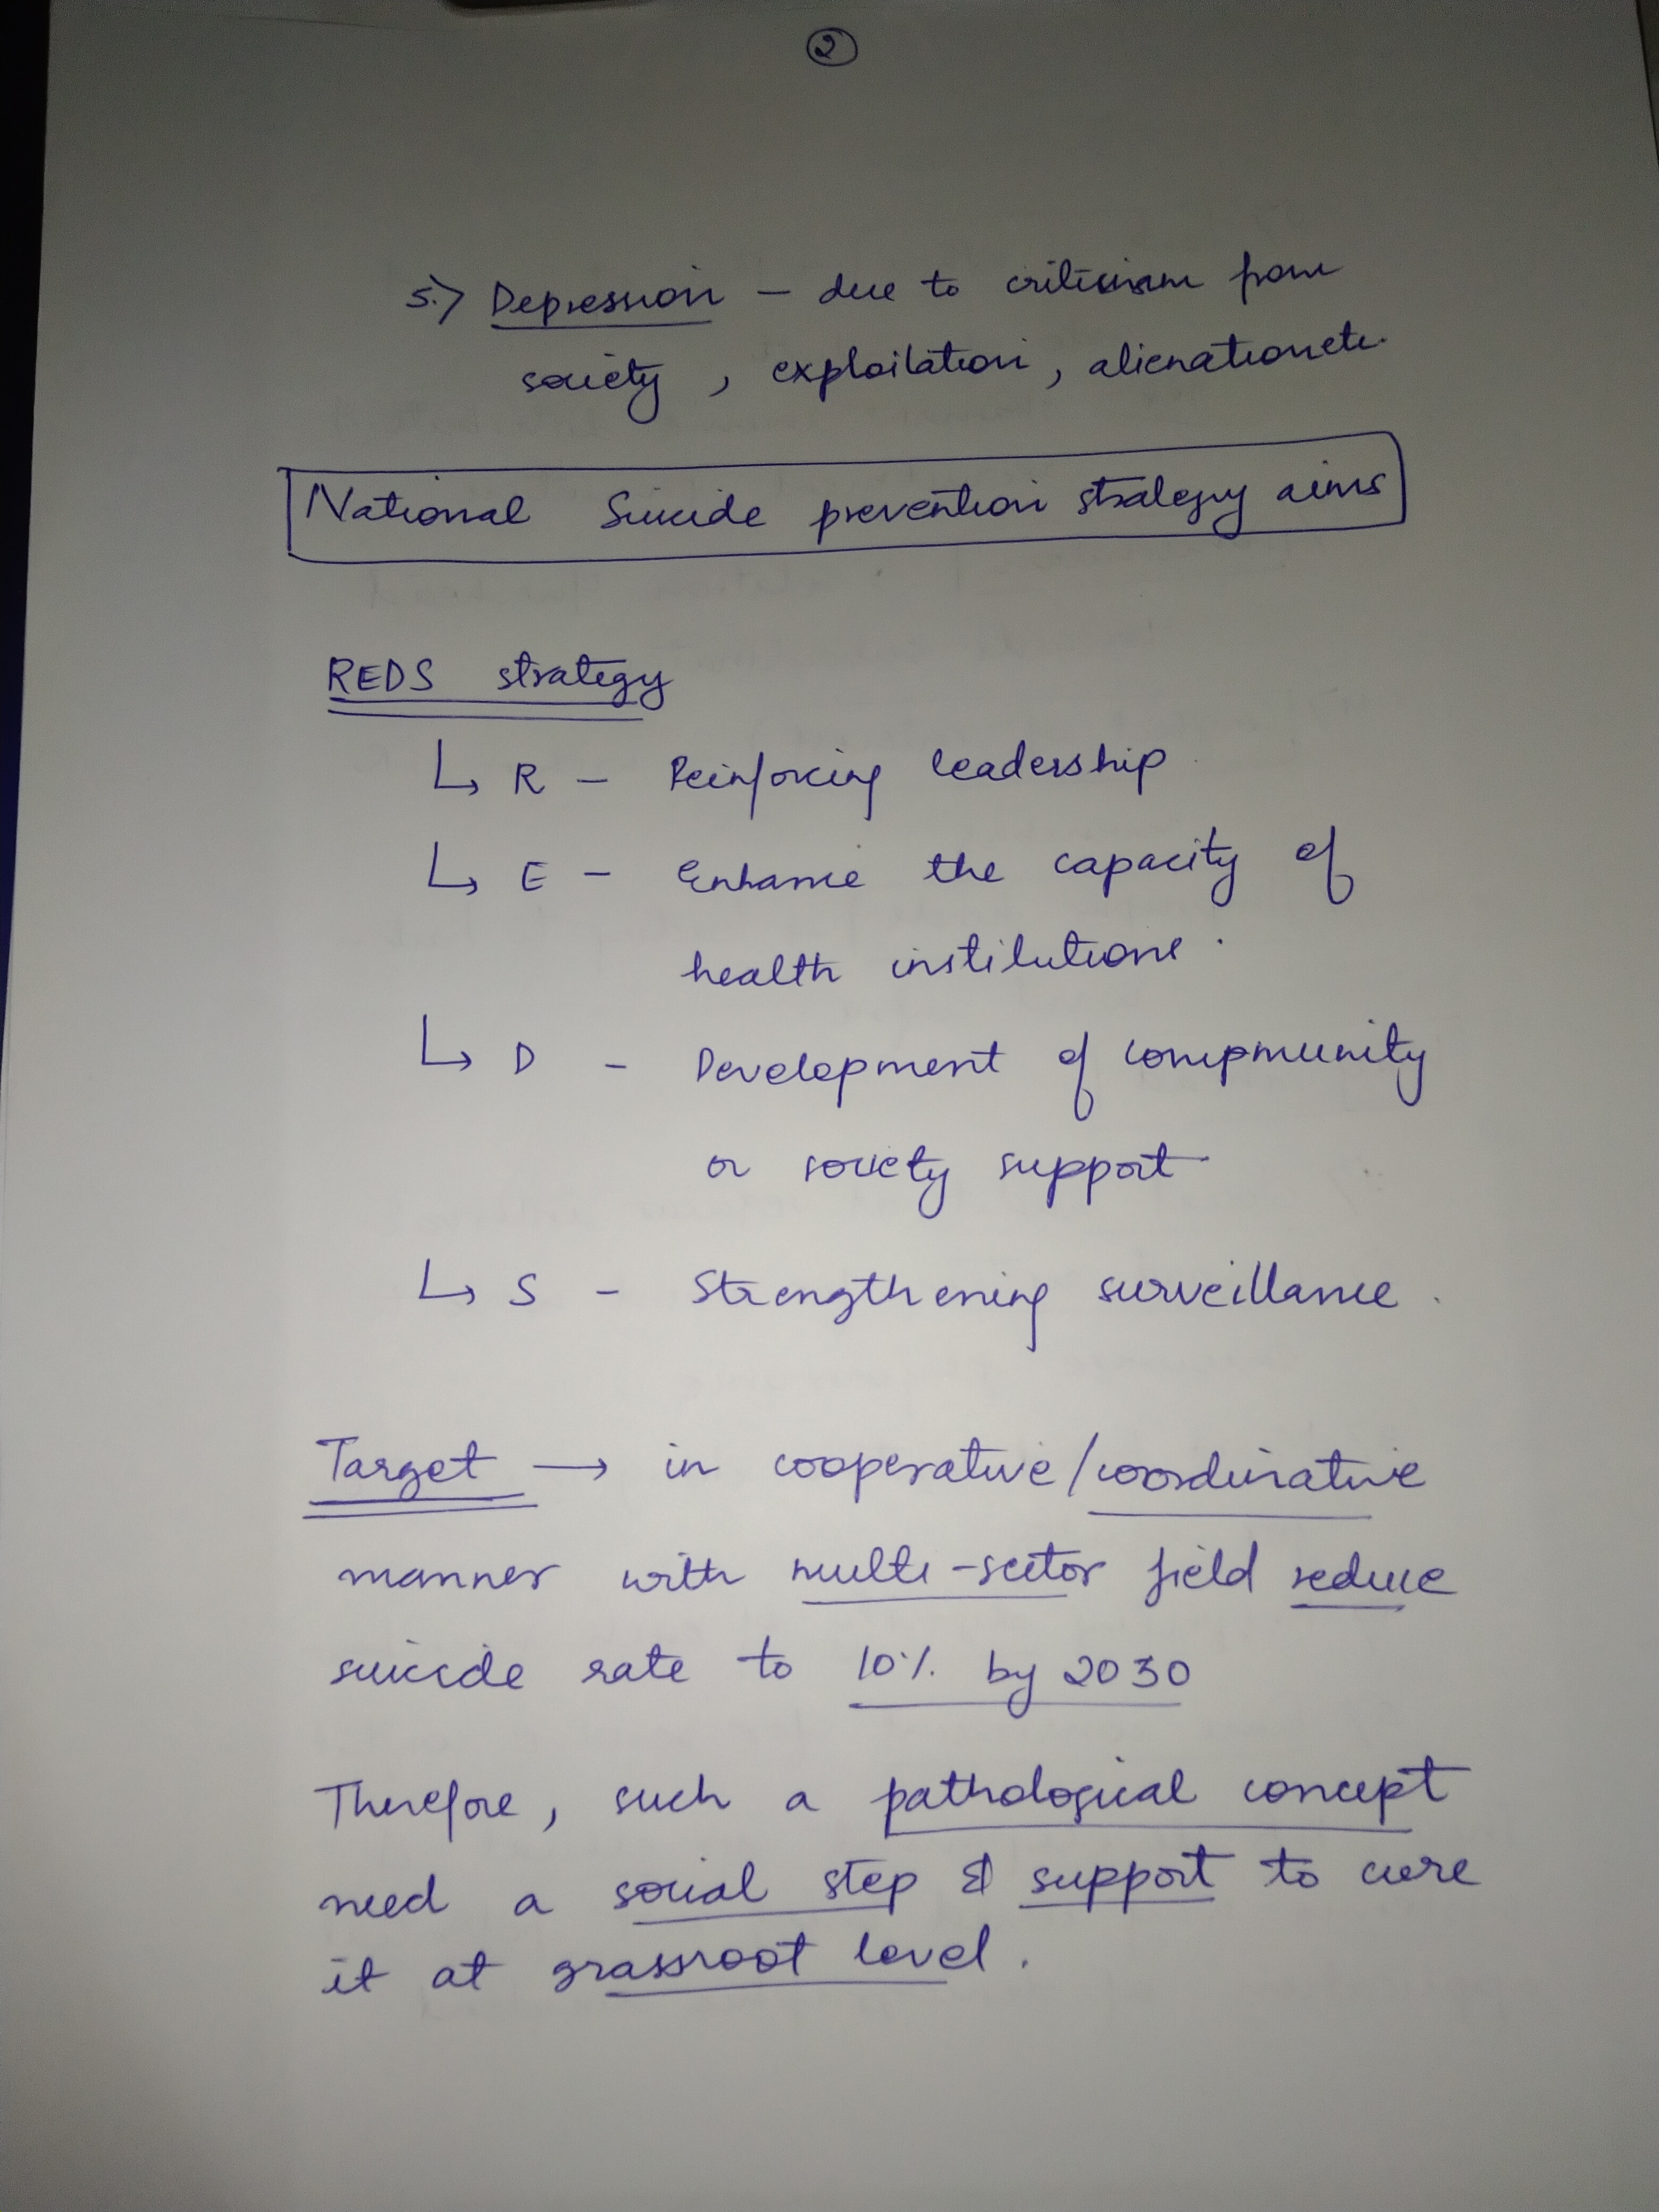 2
5.) Depression – due to criticism from
society, exploitation, alienation etc.
National Suicide prevention strategy aims
REDS strategy
↳ R – Reinforcing leadership
↳ E – Enhance the capacity of
health institutions.
↳ D – Development of compmunity
or society support
↳ S – Strengthening surveillance.
Target → in cooperative/coordinative
manner with multi-sector field reduce
suicide rate to 10% by 2030
Therefore, such a pathological concept
need a social step & support to cure
it at grassroot level.